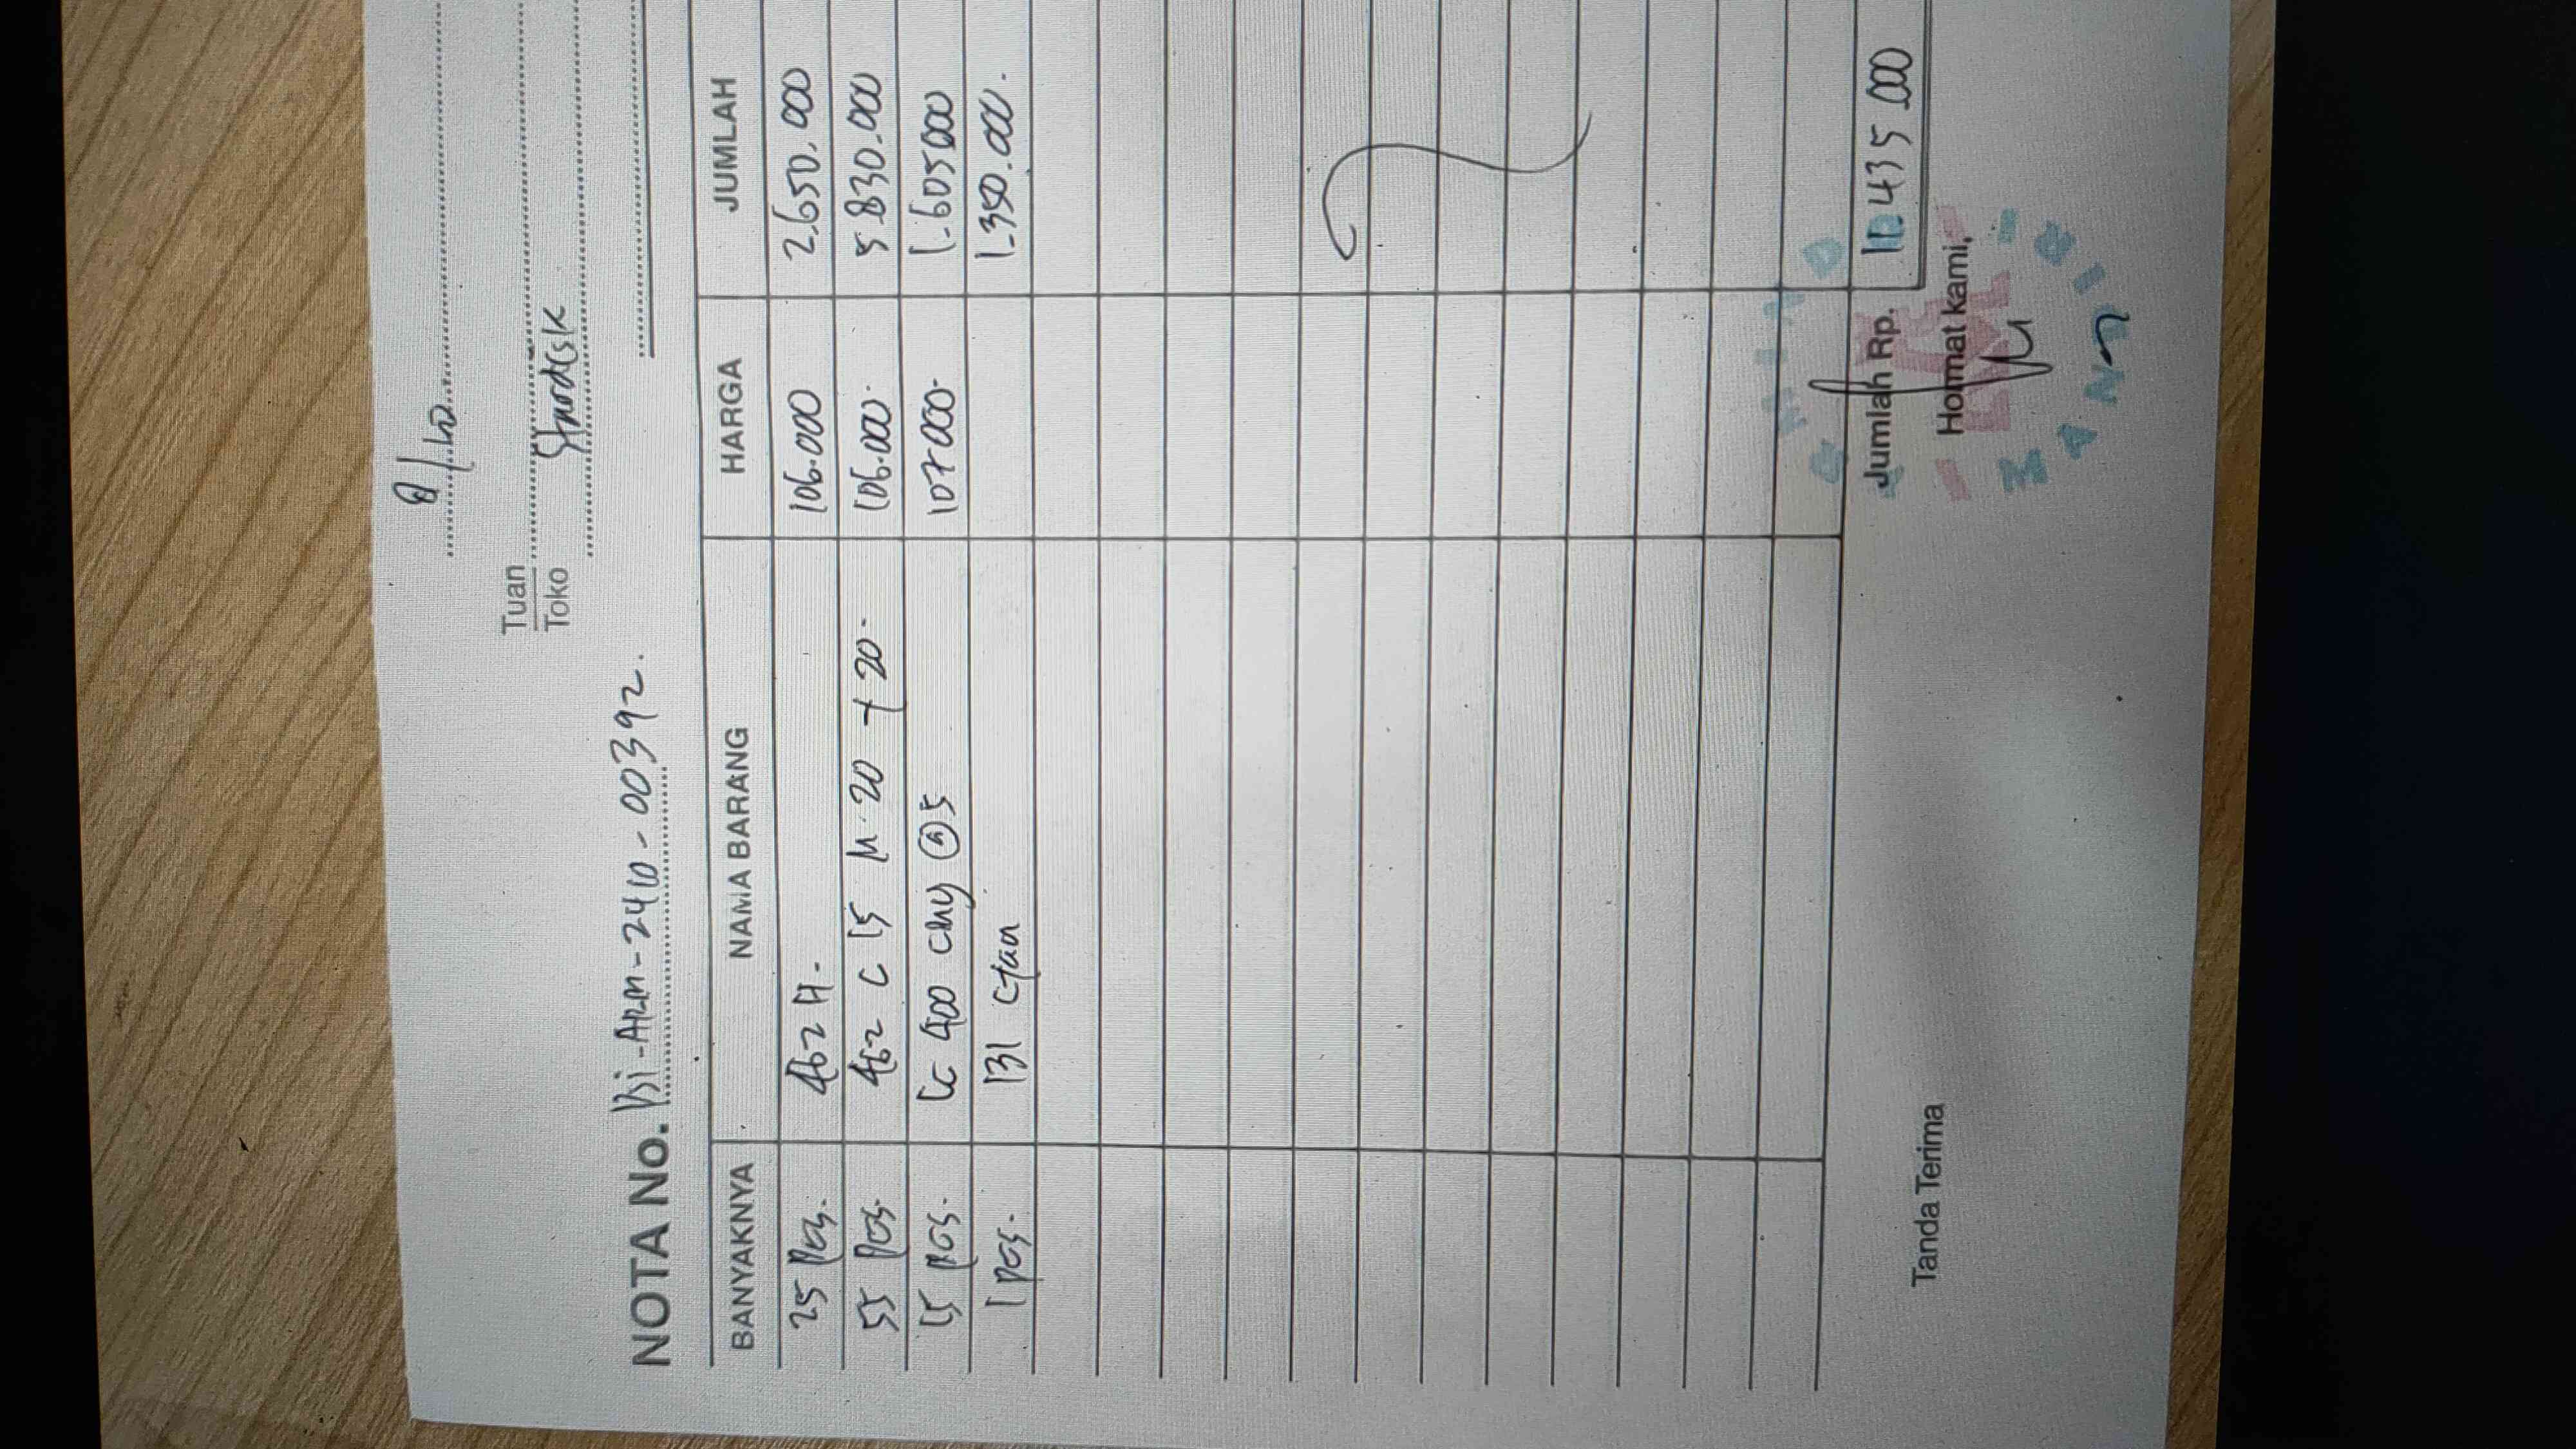 Tuan
Toko
NOTA No. 2410-00392.
BANYAKNYA NAMA BARANG HARGA JUMLAH
25 pcs. 462 H. 106.000 2.650.000
55 pcs. 462 C 15 M 20 + 20- 106.000. 5.830.000
15 pcs. 400 107000- 1.605000
1 pcs. 131 1.350.000.
Jumlah Rp. 10 435 000
Tanda Terima Hormat kami,